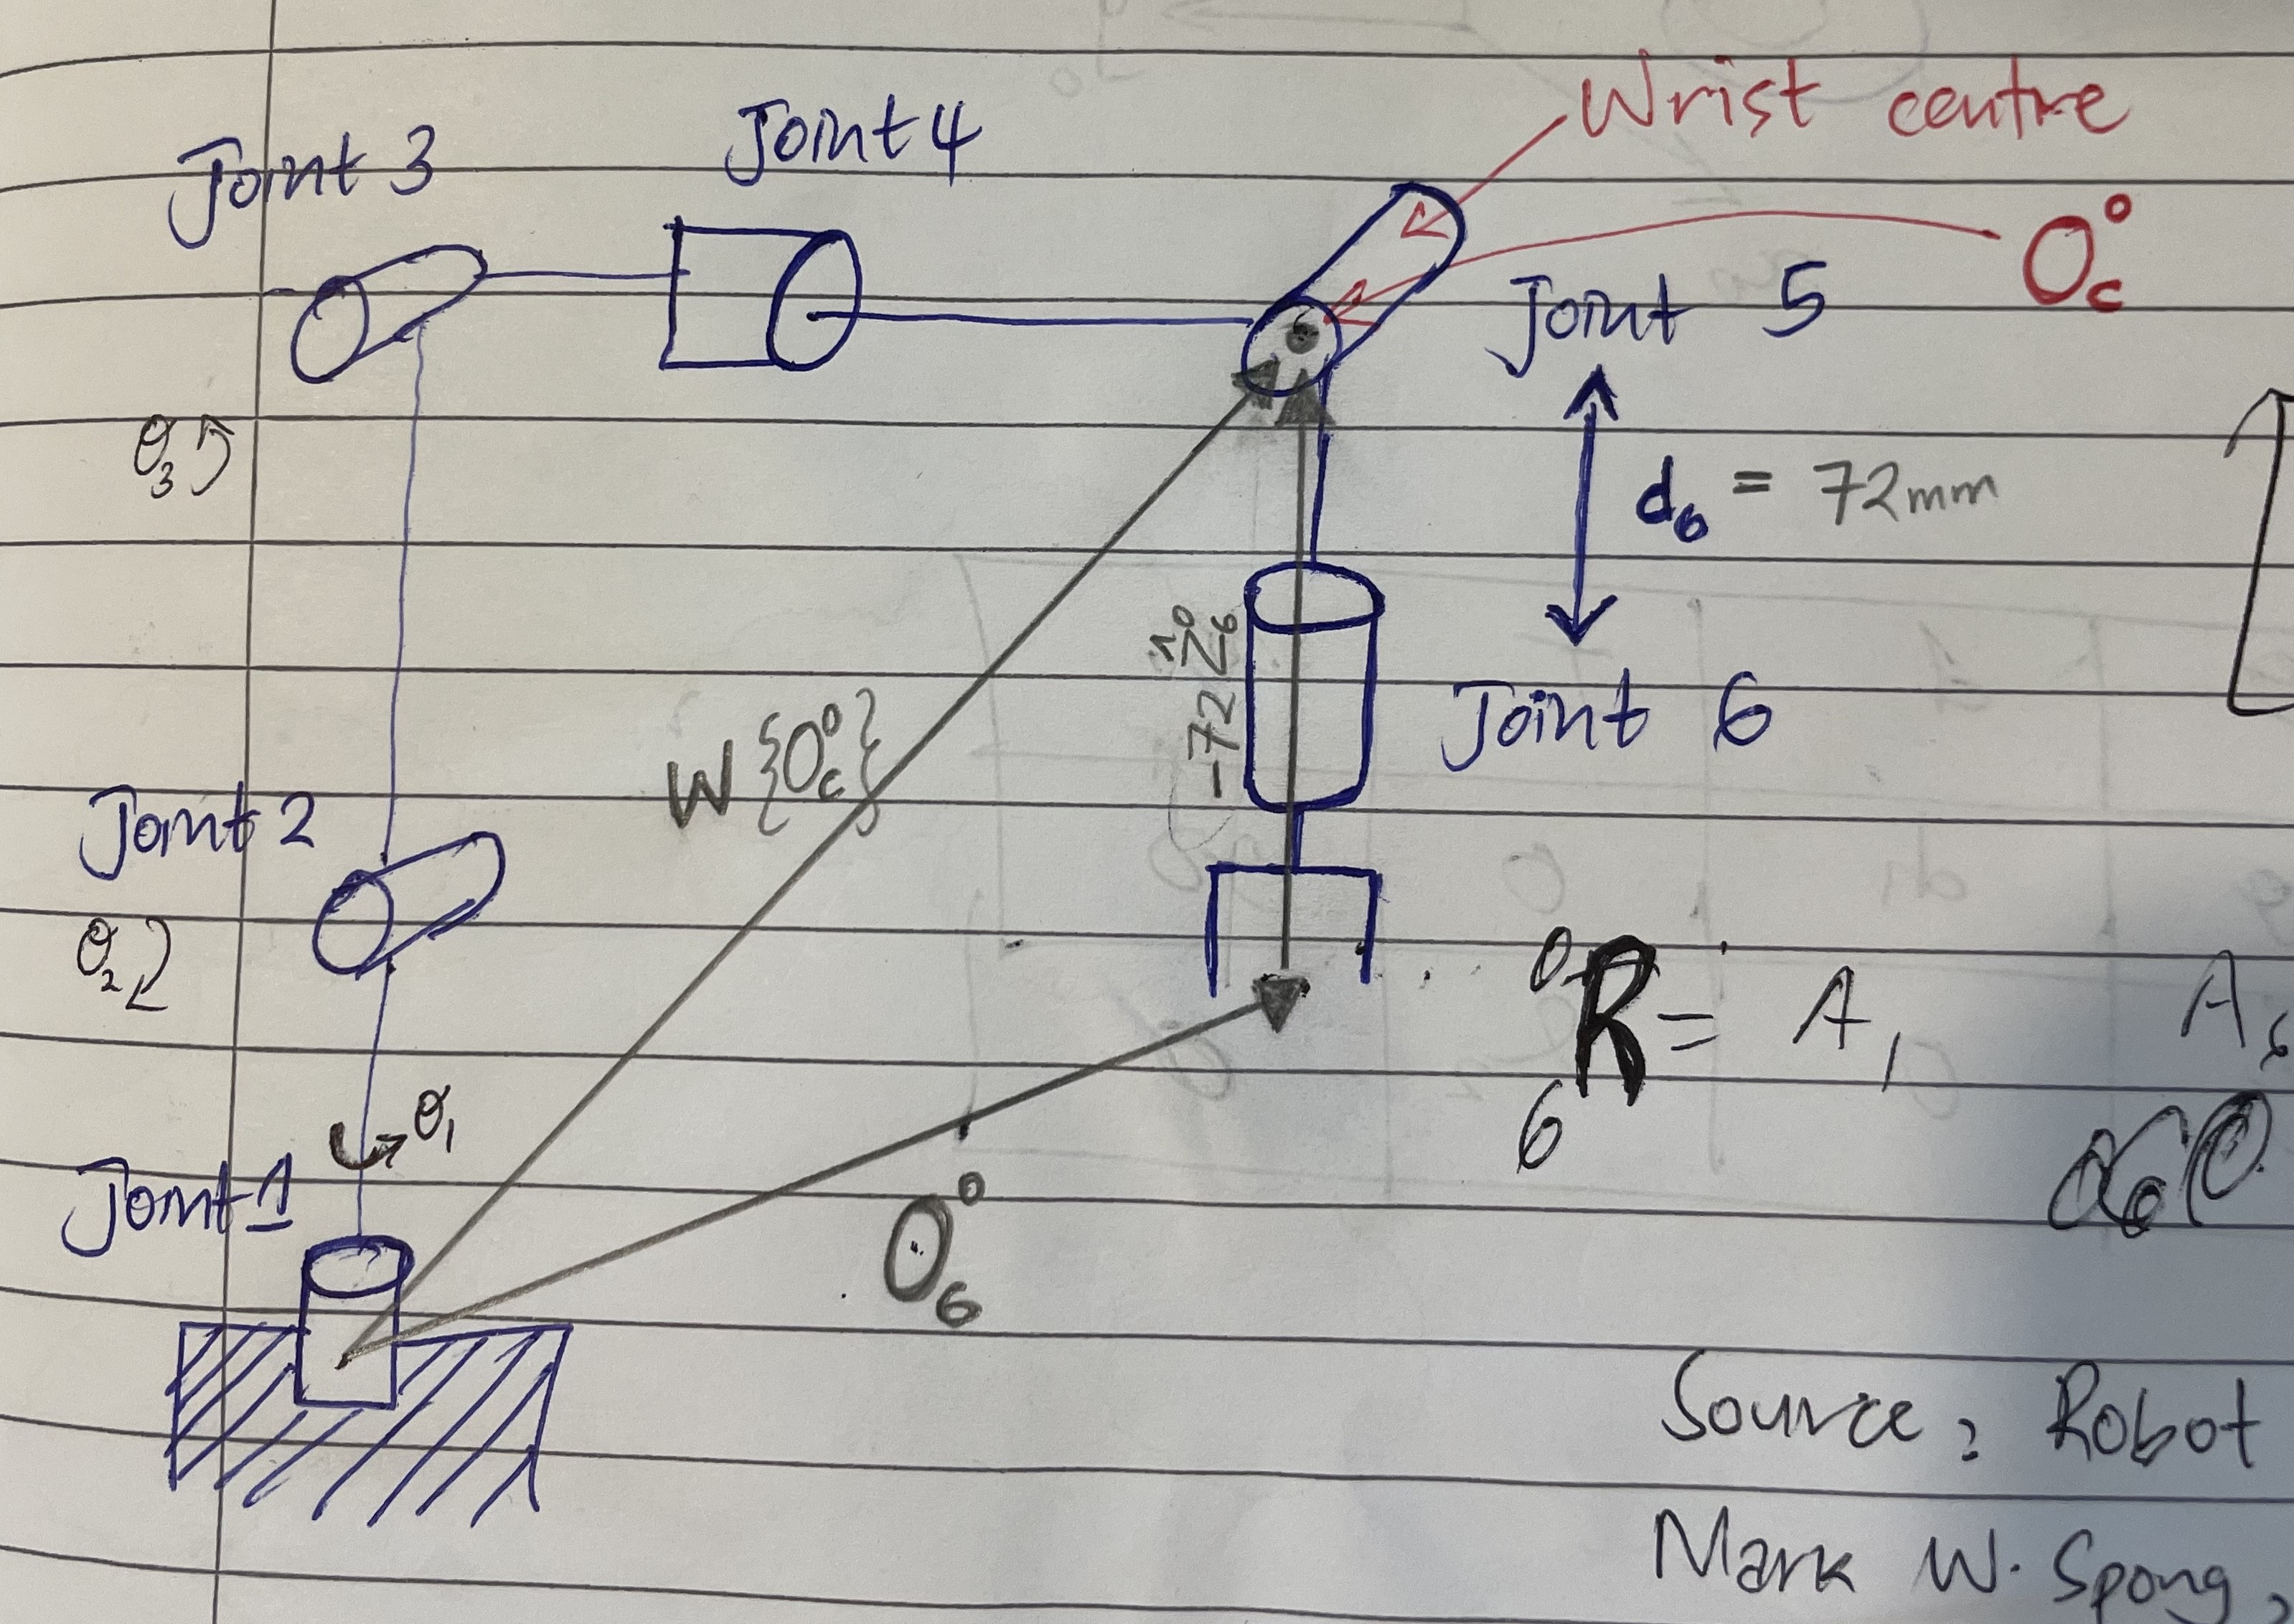 Wrist centre
Joint 3
Joint 4
O⁰c
Joint 5
θ₃
d₆ = 72mm
-72Ẑ⁰₆
Joint 6
W{O⁰c}
Joint 2
θ₂
⁰₆R = A₁ A₆
θ₁
Joint 1
O⁰₆
Source: Robot
Mark W. Spong,